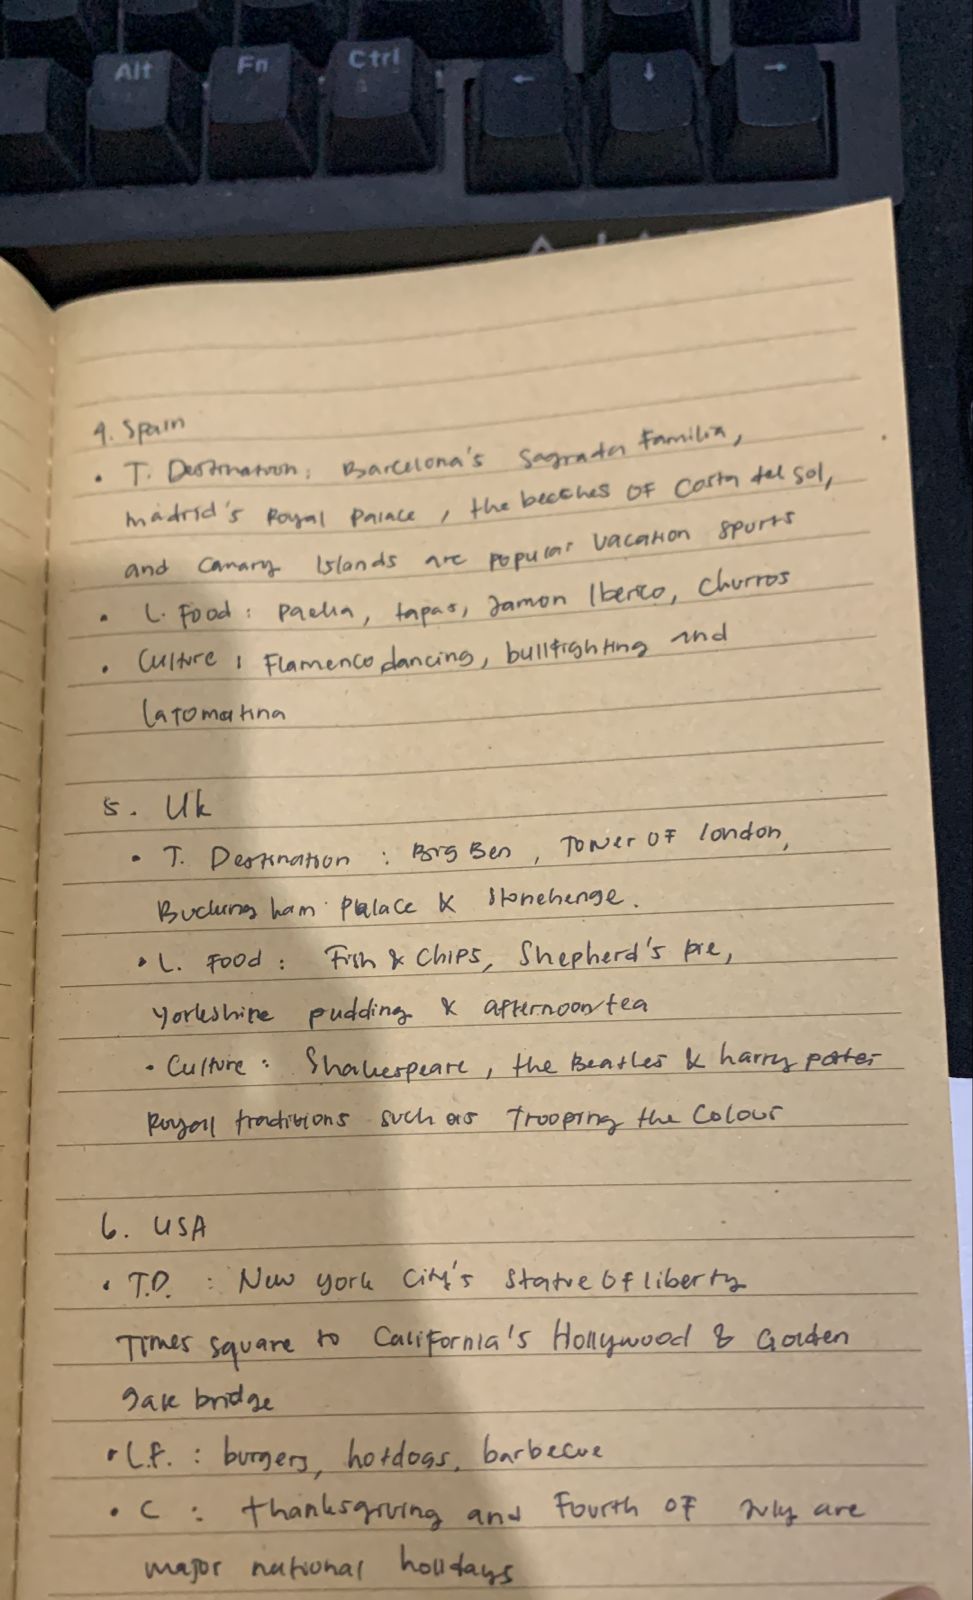 Alt Fn Ctrl ← ↓ →
4. Spain
• T. Destination: Barcelona's Sagrada Familia,
madrid's Royal Palace, the beaches of Costa del Sol,
and Canary Islands are popular vacation spurts
• L. Food: paella, tapas, Jamon Iberico, Churros
• Culture: Flamenco dancing, bullfighting and
latomatina
5. UK
• T. Destination: Big Ben, Tower of london,
Buckingham Palace & Stonehenge.
• L. Food: Fish & Chips, Shepherd's pie,
Yorkshire pudding & afternoon tea
• Culture: Shakespeare, the Beatles & harry potter
Royall traditions such as Trooping the Colour
6. USA
• T.D. : New york City's Statue Of liberty
Times square to California's Hollywood & Golden
gate bridge
• L.F. : burgers, hotdogs, barbecue
• C : thanksgiving and Fourth of July are
major national holidays